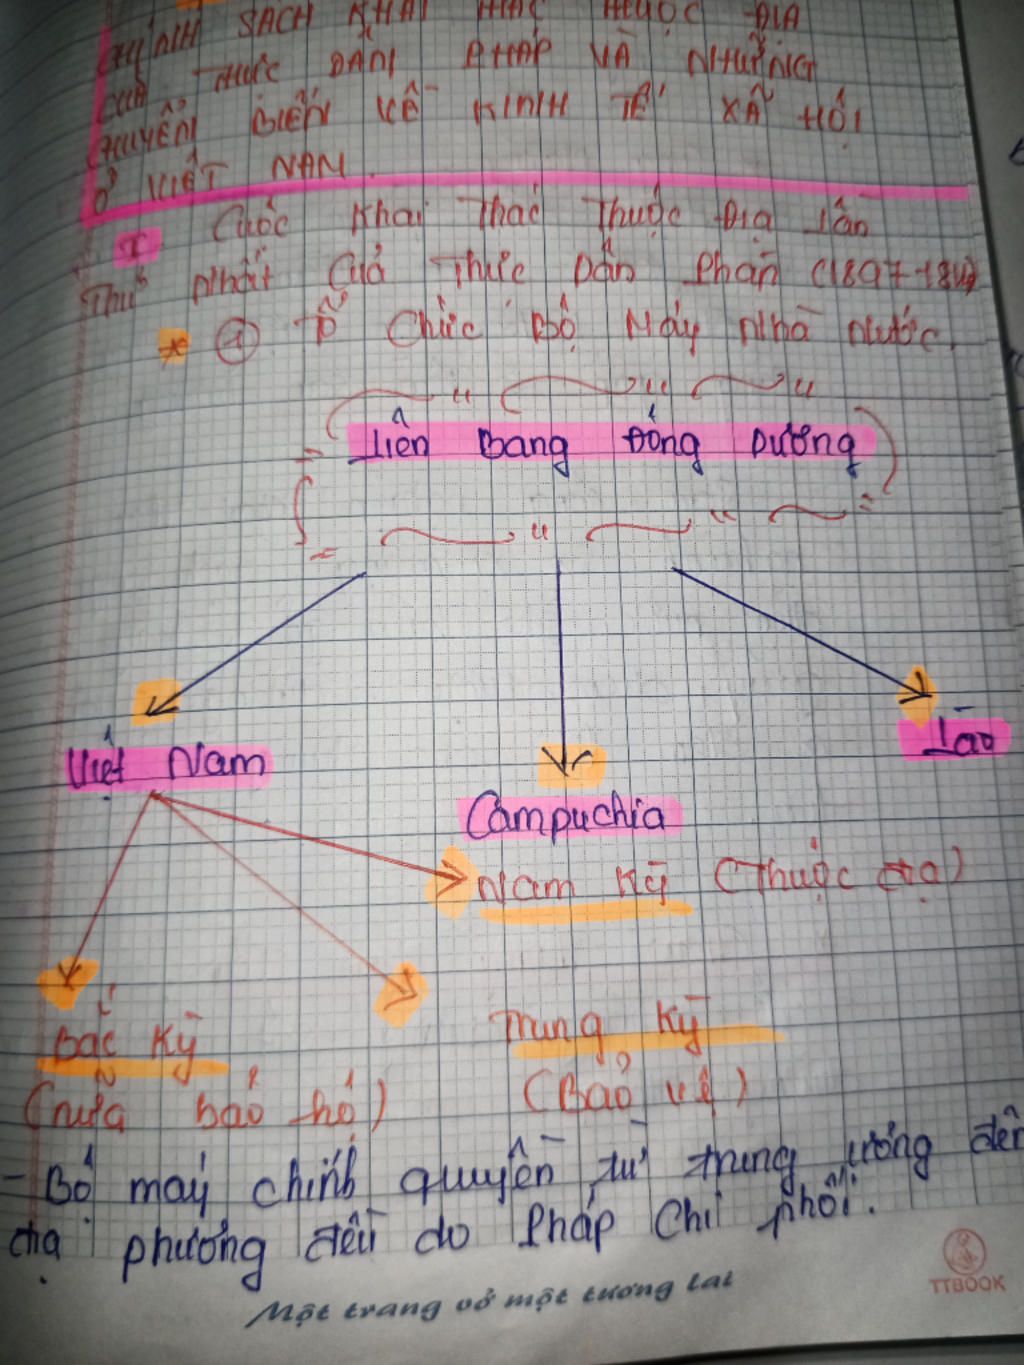 CHÍNH SÁCH KHAI THÁC THUỘC ĐỊA
CỦA THỰC DÂN PHÁP VÀ NHỮNG
CHUYỂN BIẾN VỀ KINH TẾ XÃ HỘI
Ở VIỆT NAM.
I Cuộc Khai Thác Thuộc Địa Lần
Thứ Nhất Của Thực Dân Pháp (1897-
* 1 Tổ Chức Bộ Máy Nhà Nước.
Liên Bang Đông Dương
Việt Nam
Campuchia
Lào
Nam Kỳ (Thuộc địa)
Bắc Kỳ
(nửa bảo hộ)
Trung Kỳ
(Bảo vệ)
- Bộ máy chính quyền từ trung ương đến
địa phương đều do Pháp Chi phối.
Một trang vở một tương lai
TTBOOK